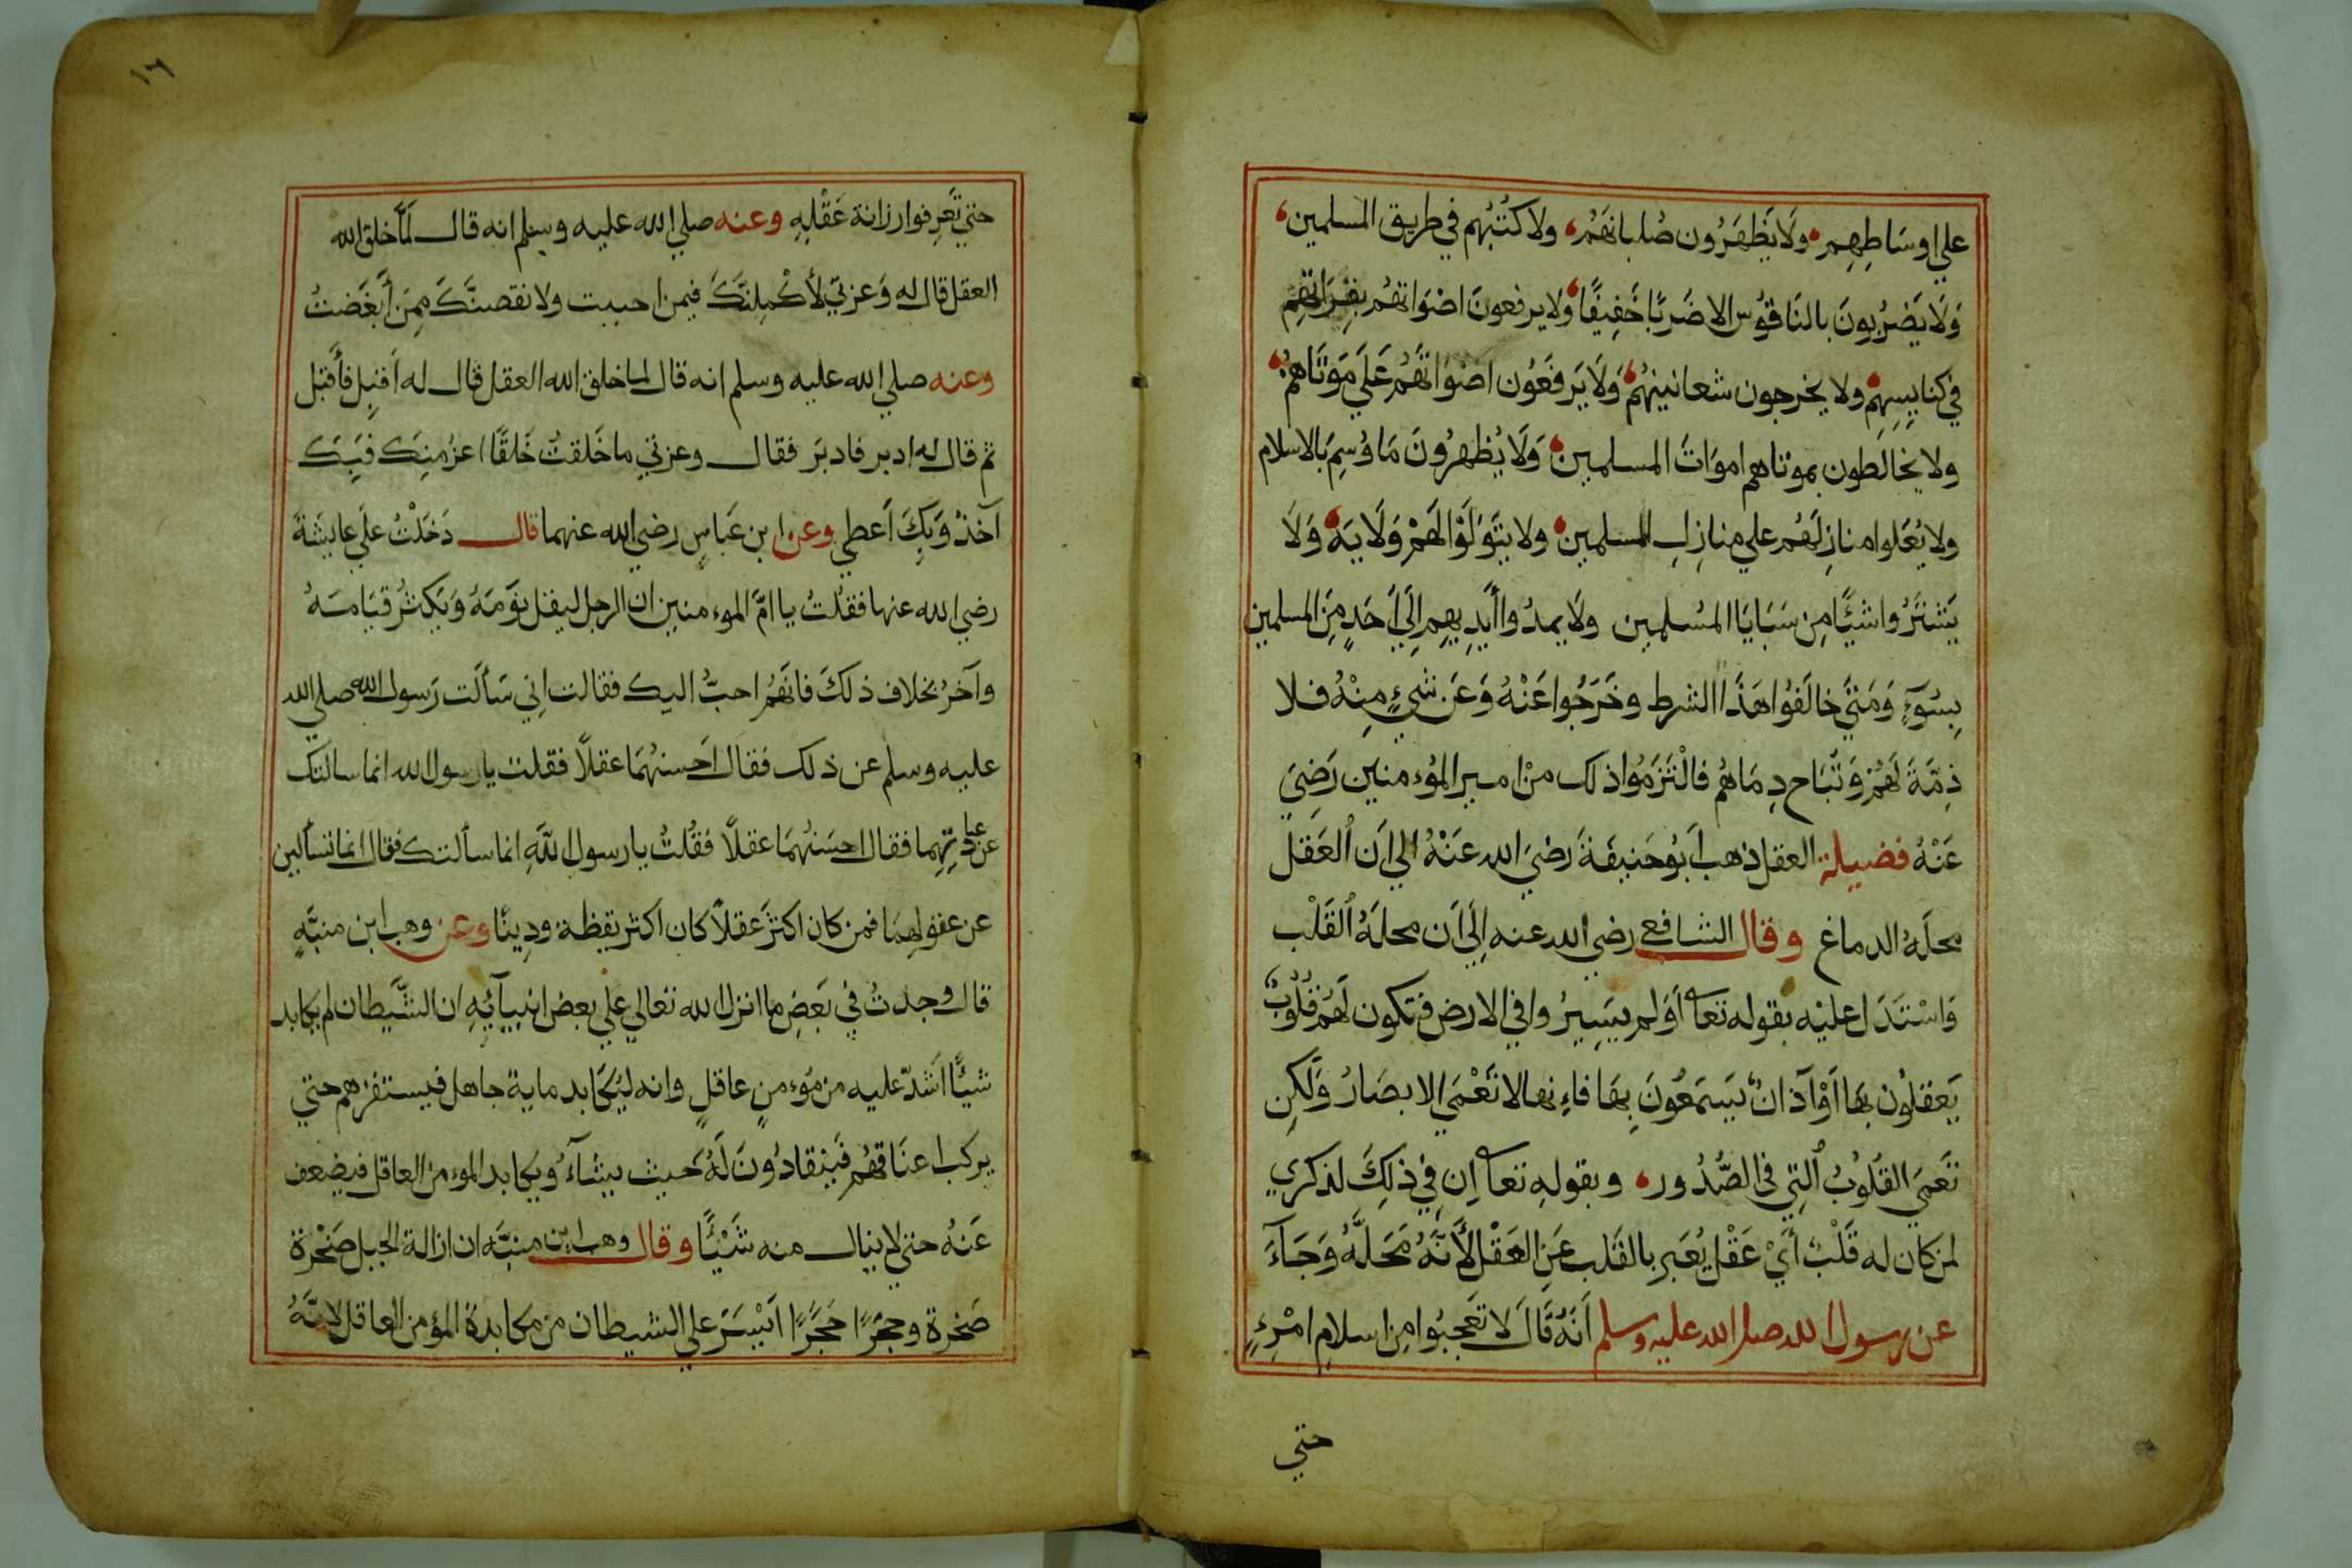 علي اوسَاطِهِم ولَا يَظهَرُون صُلبانَهُمْ ولا كتُبُهم في طريق المسلمين
وَلَا يَضرُبونَ بالنَاقوُس الا ضَربًا خَفِيفًا ولا يرفعونَ اصْوَاتهُم بقِرَاتهِم
في كنايسِهِم ولا يخرجون شعانينهُم وَلَا يَرفَعوُن اصْوَاتَهُم عَلَي مَوتَاهمُ
ولا يخالَطون بموتاهم اموَاتَ المسلمين وَلَا يُظهرُونَ مَا وُسِمَ بالاسلام
ولا يُعَلوا منازِلَهُم علي منازِلِ المسلمين ولا يتَوَلَوْا لَهمْ وَلَايَة وَلَا
يَشتَرُوا شيًّا مِن سَبَايَا المُسلمِين ولَا يمدُوا أَيدِيهِم اِلَي اَحَدٍ مِنَ المسلمين
بِسُوٓءٍ وَمَتَي خالَفُوا هَذَا الشرط وخَرَجُوا عَنْهُ وَعَن شيءٍ مِنْهُ فلا
ذِمّةَ لَهُمْ وَتُبَاح دِمَاهُم فالْتَزَمُوا ذلك منْ امير المُوءمنين رَضِيَ
عَنْهُ فضيلة العقل ذهب اَبوُ حَنيفَةَ رَضيَ الله عَنْهُ الي اَن العَقل
محلَهُ الدماغ وقال الشافعي رضي الله عنه اِلَي اَن محلَهُ القَلْب
وَاسْتَدَل عليْه بقوله تعا أَوَلم يسَيِرُوا في الارض فتكون لَهُم قُلُوبٌ
يَعقلوُن بهَا اَوْ آذانٌ يَسمَعُونَ بِهَا فاءِنها لا تَعْمَي الابصَارُ وَلَكِن
تَعمَي القُلوُبُ الَتِي في الصُّدُور وبقولهِ تعا اِن في ذلِكَ لذكري
لمن كان له قَلْبٌ أَيْ عَقْل يُعَبر بالقَلب عَنِ العَقْل لأَنّهُ مَحَلَّهُ وَجَآءَ
عن رسول الله صلي الله عليه وسلم اَنَهُ قَالَ لا تَعجبُوا مِن اسلامِ امْرِءٍ
حتي
١٦
حتي تَعرِفوا رزانة عَقْلِهِ وعنه صلي الله عليه وسلم انه قال لَمَّا خلق الله
العقل قال له وَعزتي لأكْمِلنَّكَ فيمن احببت ولا نقصنَّكَ مِمَن أَبغَضتُ
وعنه صلي الله عليه وسلم انه قال لما خلق الله العقل قال له اَقبِل فأَقبَل
ثم قال له ادبر فادبَر فقال وعزتي ما خَلقتُ خَلقًا اعزُ منِكَ فَبِكَ
آخذُ وَبِكَ اَعطي وعن ابن عَباسٍ رضي الله عنهما قال دَخَلْتُ علَي عايشَةَ
رضي الله عنها فقُلتُ يا امَّ الموءمنين ان الرجل ليقل نَومَهُ وَيَكثرُ قيَامَهُ
وآخرُ بخلاف ذلكَ فانَهُم احبُّ اليك فقالت اِنِي سَأَلَت رَسول الله صلي الله
عليه وسلم عن ذلك فقال اَحسنهُمَا عقلًا فقلت يا رسول الله انما سالتك
عن عبادتهِما فقال احسَنُهُمَا عقلًا فقُلتُ يا رسول اللهِ انما سألتك فقال انما تسألين
عن عقولِهمَا فمن كان اكثَرَ عقلاً كان اكثر يقظة ودِينًا وعن وهب ابن منبّهٍ
قال وجدتُ في بَعَضِ ما انزل الله تعالي علي بعض انبيآئِهِ ان الشّيطان لم يكابد
شيًّا اشَدّ عليه من مُوءمنٍ عاقلٍ وانه ليُكَابد ماية جاهل فيستفزهم حتي
يركب اعنَاقهُم فَينقادُونَ لَهُ حَيث يشآءُ ويكابد الموءمن العاقل فيضعف
عَنهُ حتي لا ينال منه شَيْئًا وقال وهب ابن منبّه ان ازالة الجبل صَخْرة
صَخرة وحجَرًا حَجَرًا اَيْسَرَ علي الشيطان من مكابدة المؤمن العاقل لانّهُ